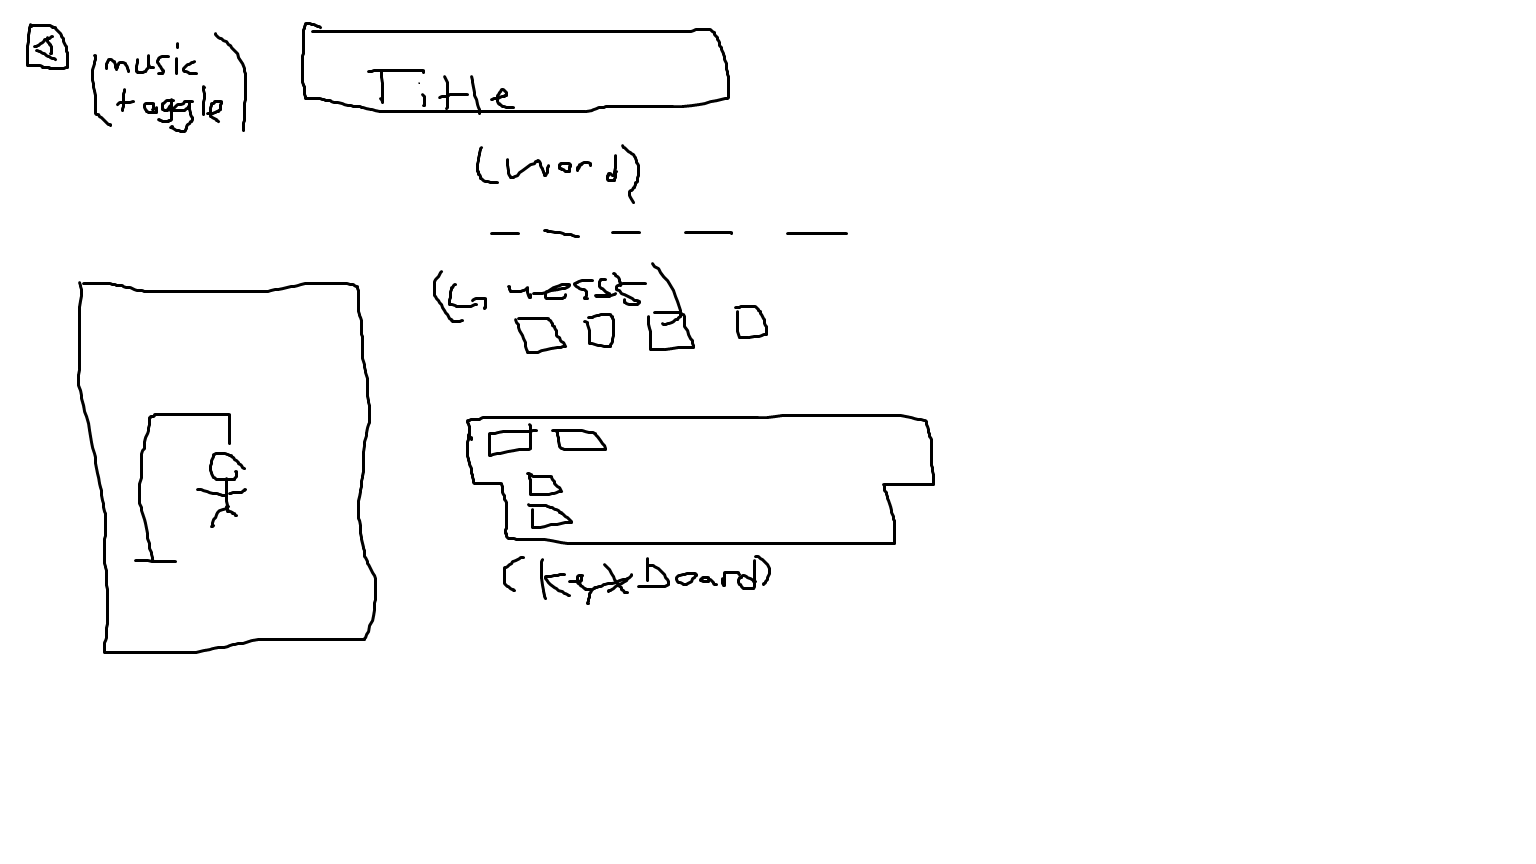 (music
toggle)
Title
(Word)
(Guesses)
(Keyboard)